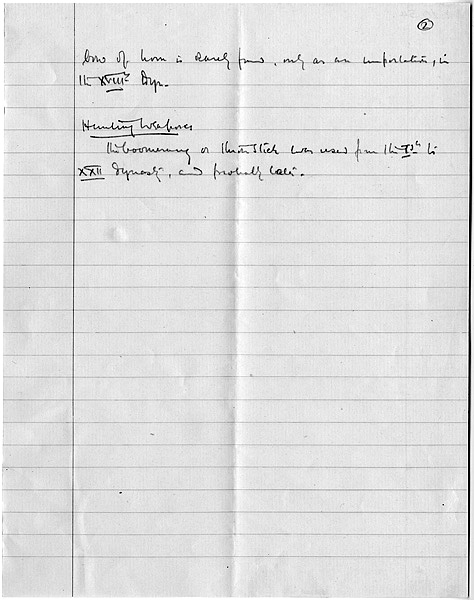 2
bow of horn is rarely found, only as an importation, in
the XVIIIth Dyn.
Hunting Weapons
The boomerang or throwstick was used from the to
XXII Dynasty, and probably later.